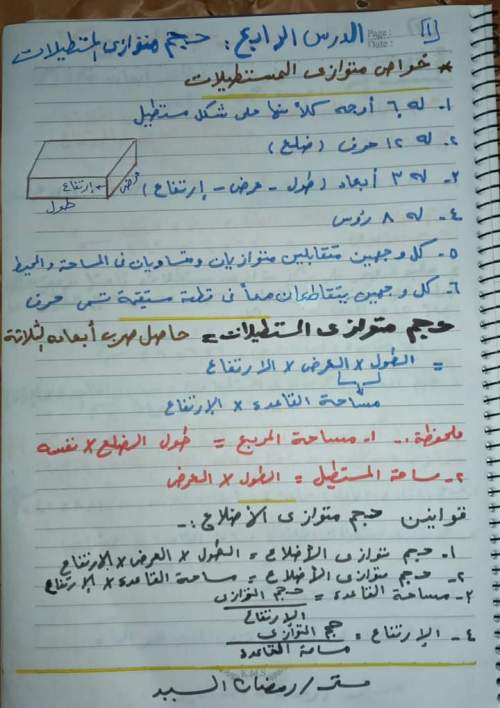 [1] الدرس الرابع: حجم متوازى المستطيلات
Page:
Date:
* خواص متوازى المستطيلات
١- له ٦ أوجه كلاً منها على شكل مستطيل
٢- له ١٢ حرف (ضلع)
٣- له ٣ أبعاد (طول - عرض - إرتفاع)
٤- له ٨ رؤس
إرتفاع
عرض
طول
٥- كل وجهين متقابلين متوازيان ومتساويان فى المساحة والمحيط
٦- كل وجهين يتقاطعان معاً فى قطعة مستقيمة تسمى حرف
حجم متوازى المستطيلات = حاصل ضرب أبعاده الثلاثة
= الطول × العرض × الارتفاع
مساحة القاعدة × الإرتفاع
ملحوظة:- ١- مساحة المربع = طول الضلع × نفسه
٢- مساحة المستطيل = الطول × العرض
قوانين حجم متوازى الأضلاع:-
١- حجم متوازى الأضلاع = الطول × العرض × الإرتفاع
٢- حجم متوازى الأضلاع = مساحة القاعدة × الإرتفاع
٣- مساحة القاعدة = حجم التوازى
الإرتفاع
٤- الإرتفاع = حجم التوازى
مساحة القاعدة
K.M.S
مستر/ رمضان السيد